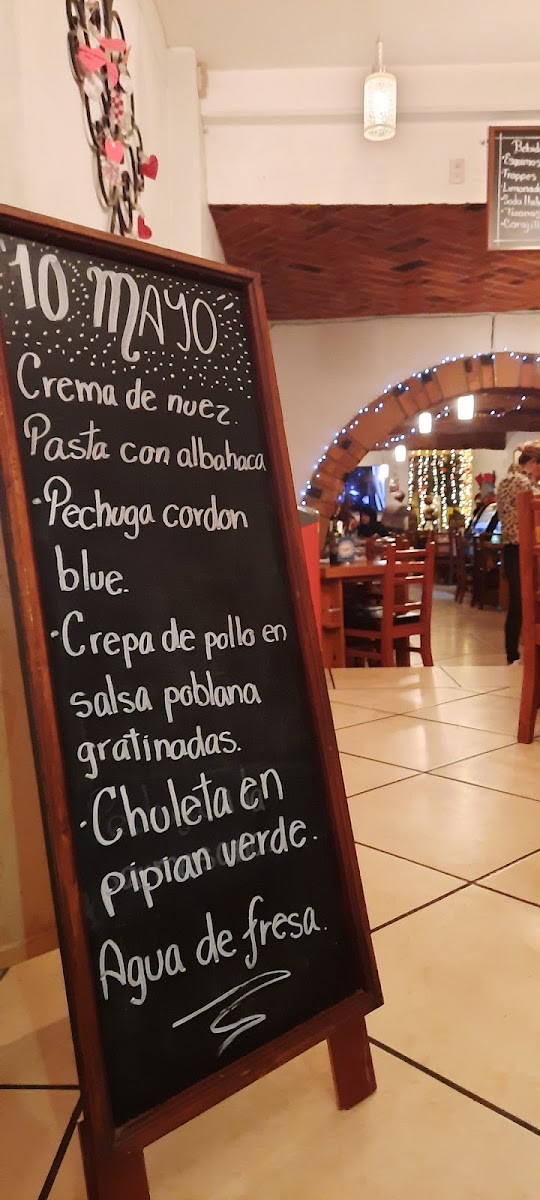 10 MAYO
Crema de nuez.
Pasta con albahaca
·Pechuga cordon
blue.
·Crepa de pollo en
salsa poblana
gratinadas.
·Chuleta en
pipian verde.
Agua de fresa.
Bebid
·Esquimos
·Frappes
·Limonada